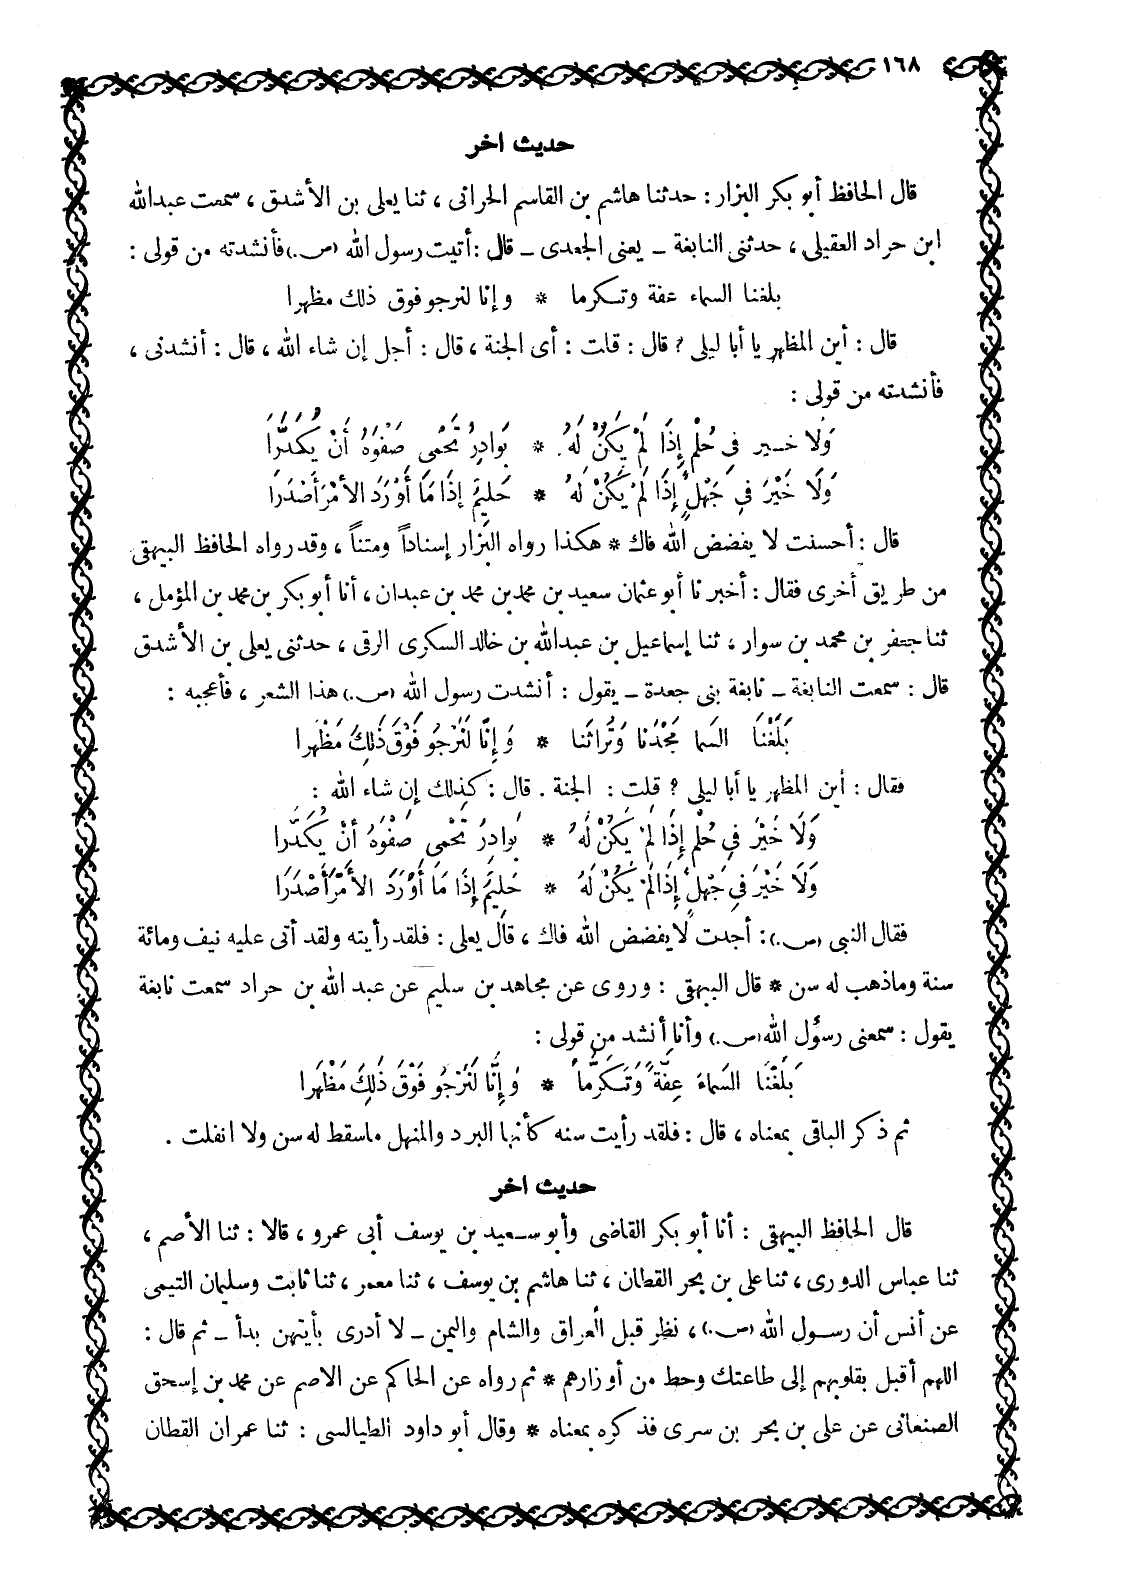 ١٦٨
حديث اخر
قال الحافظ أبو بكر البزار : حدثنا هاشم بن القاسم الحرانى ، ثنا يعلى بن الأشدق ، سمعت عبدالله
ابن حراد العقيلى ، حدثنى النابغة ــ يعنى الجعدى ــ قال : أتيت رسول الله (ص.) فأنشدته من قولى :
بلغنا السماء عفة وتكرما * وإنا لنرجو فوق ذلك مظهرا
قال : أين المظهر يا أبا ليلى ? قال : قلت : أى الجنة ، قال : أجل إن شاء الله ، قال : أنشدنى ،
فأنشدته من قولى :
وَلا خير فى حُلْمٍ إِذَا لَمْ يَكُنْ لَهُ * بَوادِرُ تَحْمى صَفْوَهُ أَنْ يُكَدَّرَا
وَلَا خَيْرَ فى جَهْلٍ إِذَا لَمْ يَكُنْ لهُ * حَلِيمٌ إذَا مَا أَوْرَدَ الأمْرَ أَصْدَرَا
قال : أحسنت لا يفضض الله فاك * هكذا رواه البزار إسناداً ومتناً ، وقد رواه الحافظ البيهقى
من طريق أخرى فقال : أخبرنا أبو عثمان سعيد بن محمد بن محمد بن عبدان ، أنا أبو بكر بن محمد بن المؤمل ،
ثنا جعفر بن محمد بن سوار ، ثنا إسماعيل بن عبدالله بن خالد السكرى الرقى ، حدثنى يعلى بن الأشدق
قال : سمعت النابغة ــ نابغة بنى جعدة ــ يقول : أنشدت رسول الله (ص.) هذا الشعر ، فأعجبه :
بَلَغْنَا السما مَجْدُنا وَتُراثنا * وَإِنَّا لَنَرْجُو فَوْقَ ذَلِكَ مَظْهرا
فقال : أين المظهر يا أبا ليلى ? قلت : الجنة . قال : كذلك إن شاء الله :
وَلَا خَيْرَ فى حُلْمٍ إِذَا لَمْ يَكُنْ لَهُ * بَوادِرُ تَحْمى صَفْوَهُ أَنْ يُكَدَّرا
وَلَا خَيْرَ فى جَهْلٍ إِذَا لَمْ يَكُنْ لَهُ * حَلِيمٌ إِذَا مَا أَوْرَدَ الأَمْرَ أَصْدَرَا
فقال النبى (ص.) : أجدت لا يفضض الله فاك ، قال يعلى : فلقد رأيته ولقد أتى عليه نيف ومائة
سنة وماذهب له سن * قال البيهقى : وروى عن مجاهد بن سليم عن عبد الله بن حراد سمعت نابغة
يقول : سمعنى رسول الله (ص.) وأنا أنشد من قولى :
بَلَغْنَا السَماءَ عِفَّةً وَتَكَرُّماً * وَإِنَّا لَنَرْجُو فَوْقَ ذَلِكَ مَظْهَرا
ثم ذكر الباقى بمعناه ، قال : فلقد رأيت سنه كأنها البرد والمنهل ماسقط له سن ولا انفلت .
حديث اخر
قال الحافظ البيهقى : أنا أبو بكر القاضى وأبو سعيد بن يوسف أبى عمرو ، قالا : ثنا الأصم ،
ثنا عباس الدورى ، ثنا على بن بحر القطان ، ثنا هاشم بن يوسف ، ثنا معمر ، ثنا ثابت وسليمان التيمى
عن أنس أن رسول الله (ص.) ، نظر قبل العراق والشام واليمن ــ لا أدرى بأيتهن بدأ ــ ثم قال :
اللهم أقبل بقلوبهم إلى طاعتك وحط من أوزارهم * ثم رواه عن الحاكم عن الاصم عن محمد بن إسحق
الصنعانى عن على بن بحر بن سرى فذكره بمعناه * وقال أبو داود الطيالسى : ثنا عمران القطان